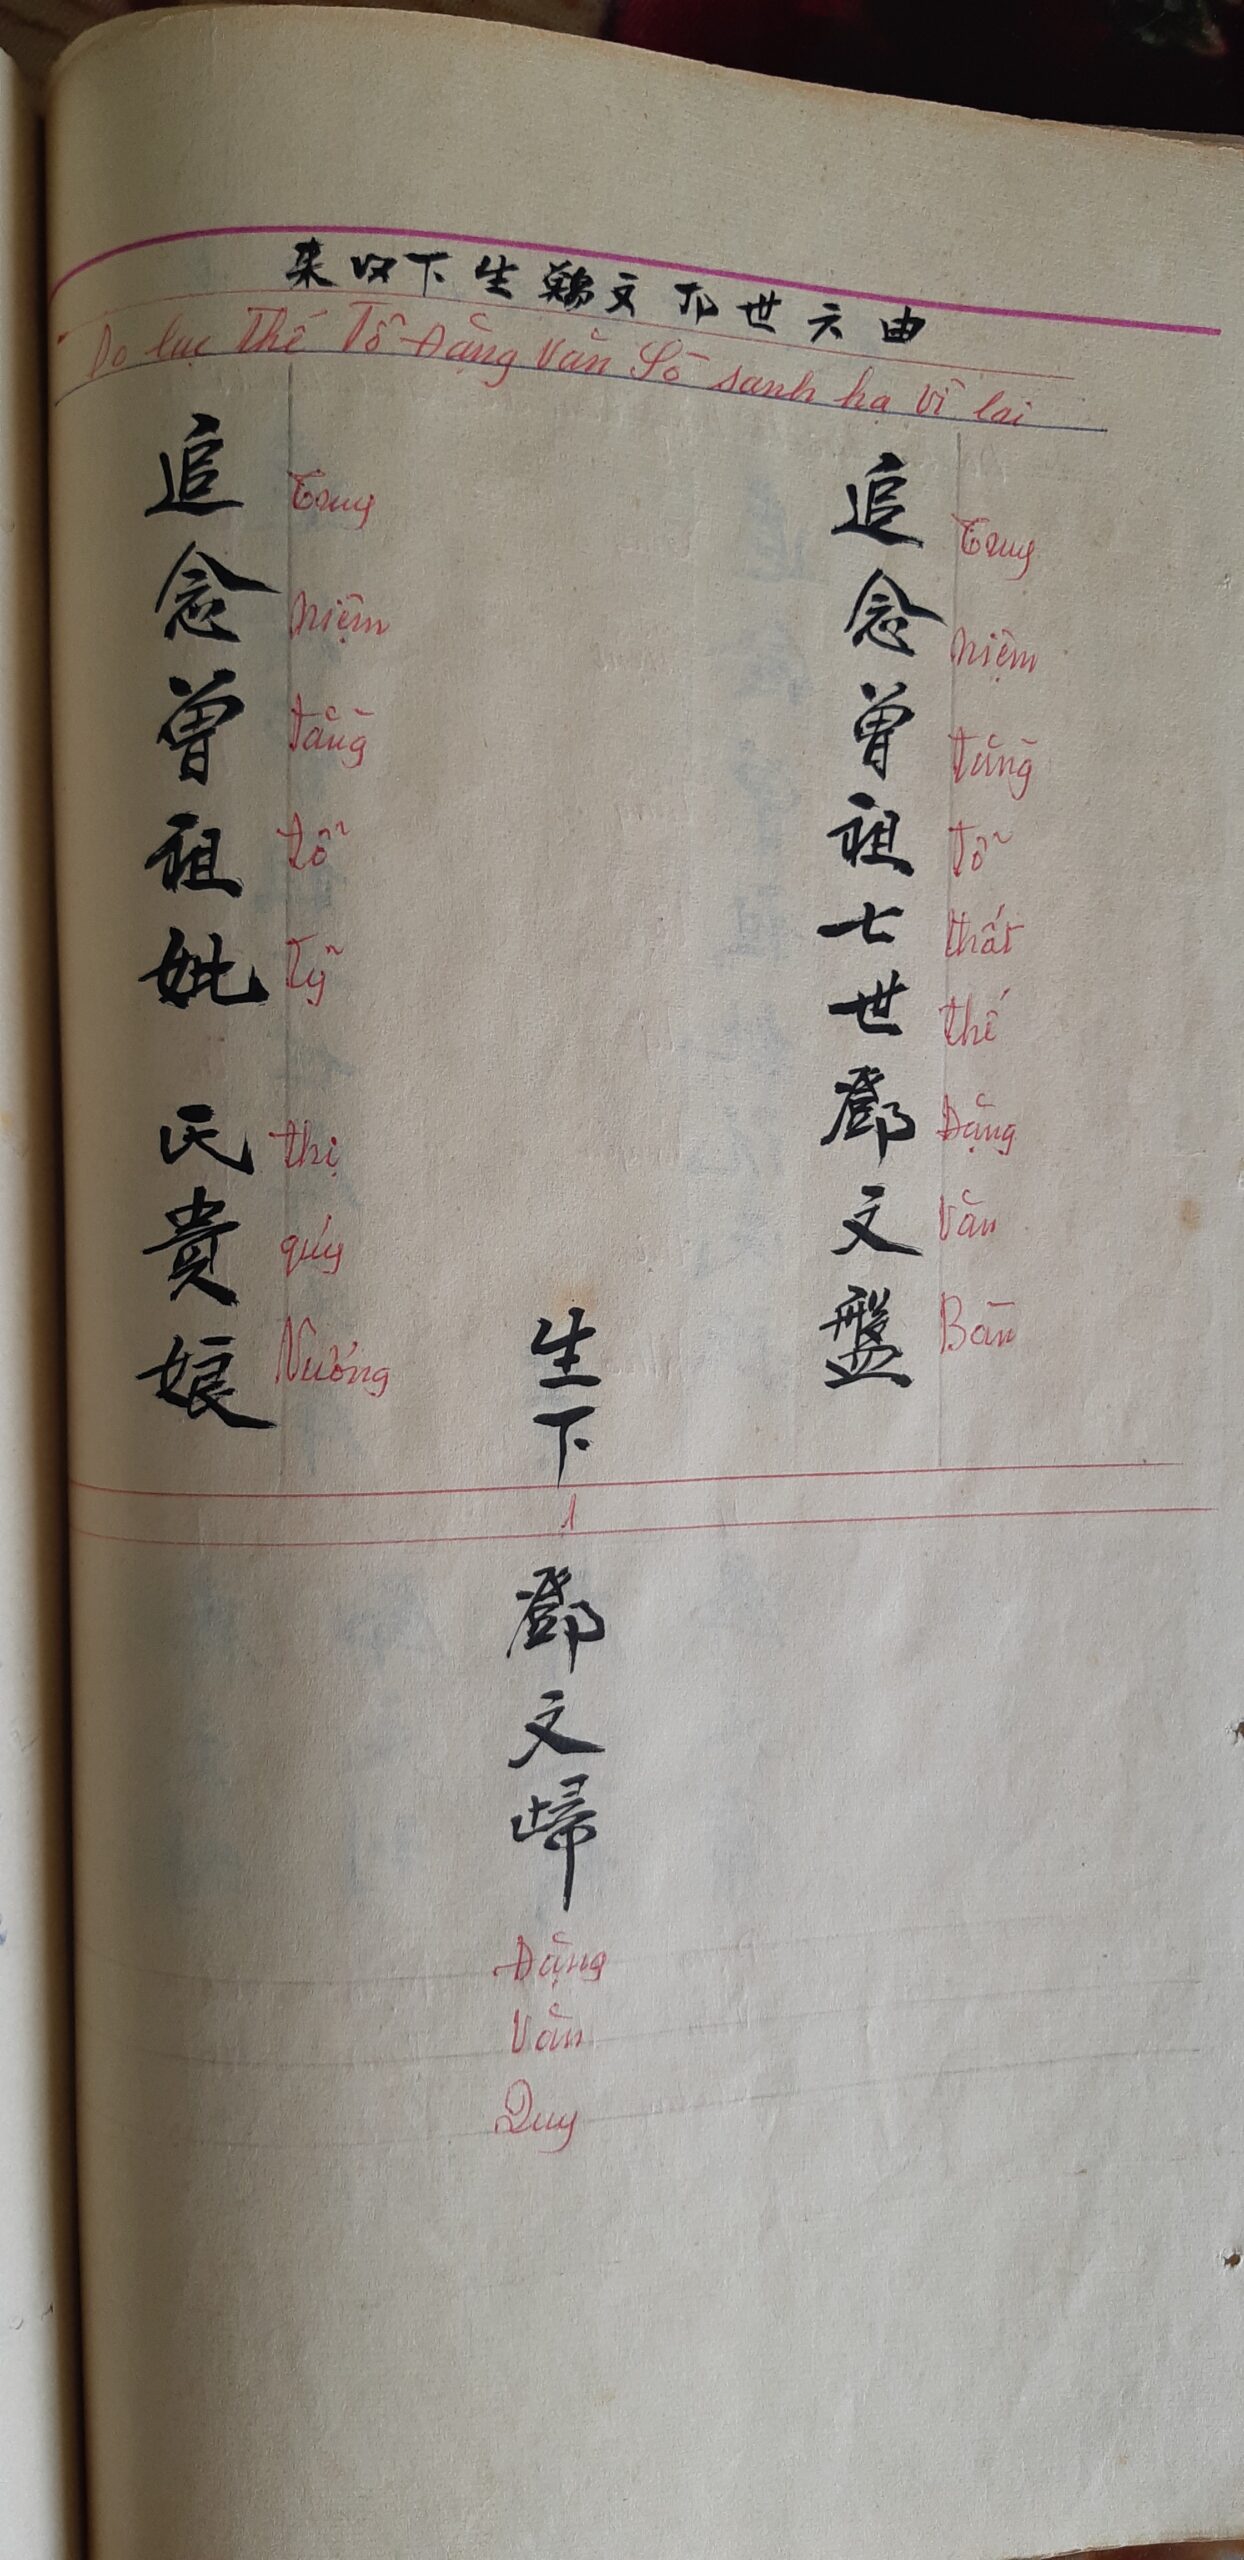 由六世文生下以来
Do lục Thế Tổ Đặng Văn Sồ sanh hạ Vĩ lai
追念曾祖七世鄧文盤
Truy
niệm
tằng
tỗ
thất
thế
Đặng
Văn
Bàn
追念曾祖妣 氏貴娘
Truy
niệm
tằng
tỗ
Tỹ
thị
qúy
Nương
生下
1
鄧文歸
Đặng
Văn
Quy